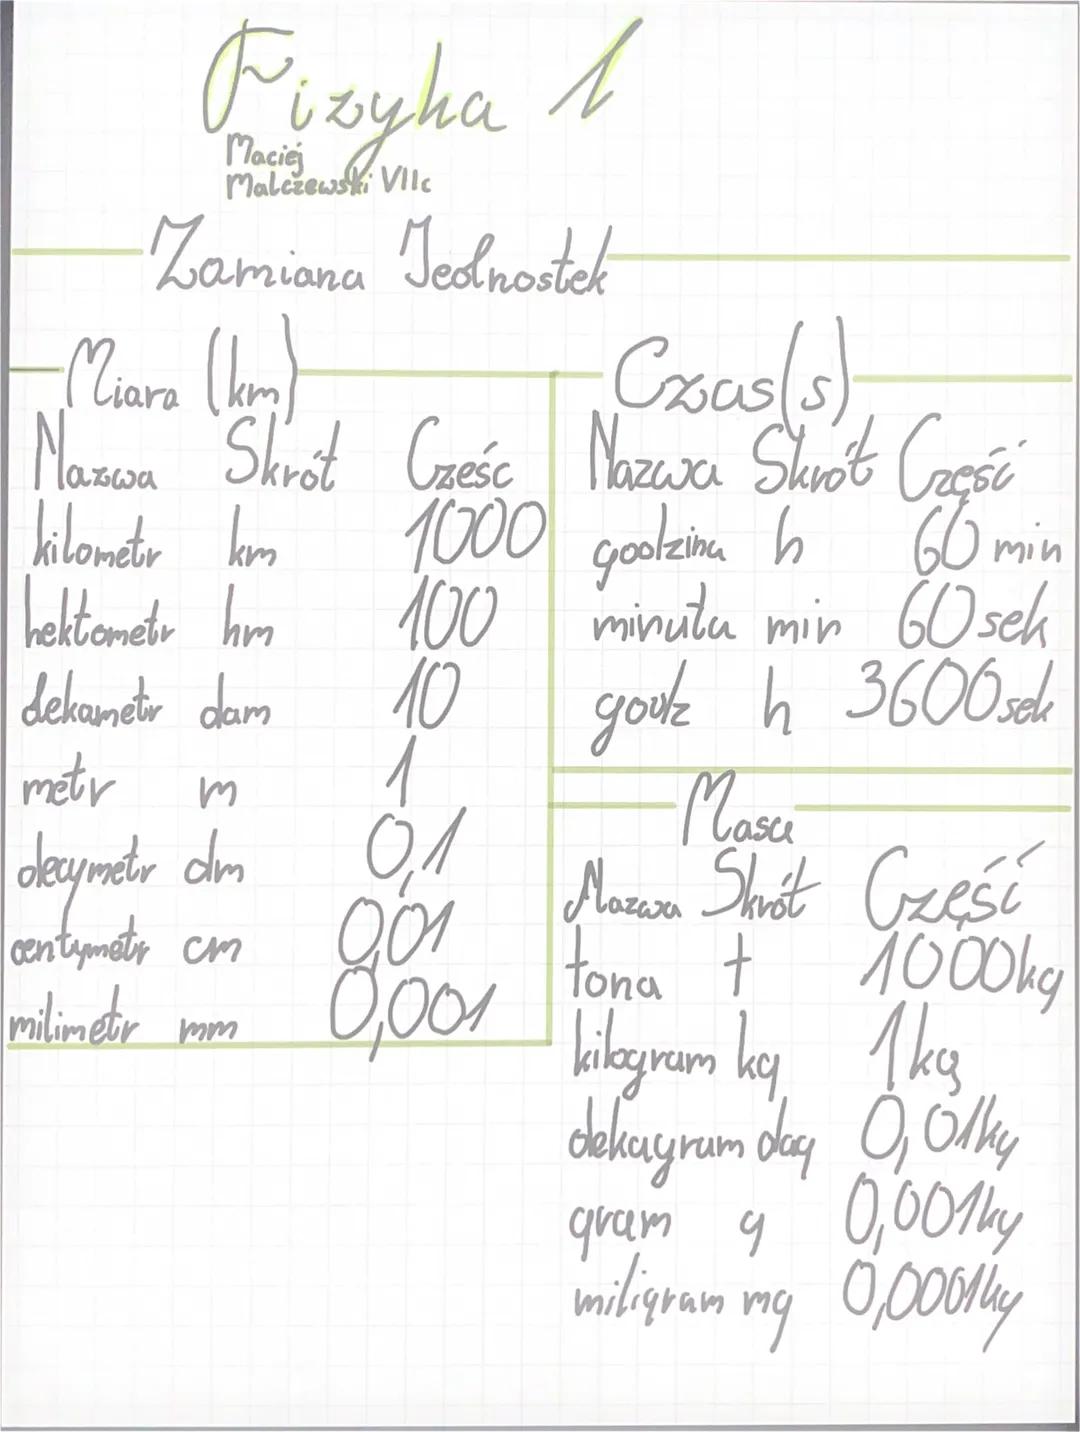 Fizyka 1
Maciej
Malczewski VIIc
Zamiana Jednostek
Miara (km)
Nazwa Skrót Cześc
kilometr km 1000
hektometr hm 100
dekametr dam 10
metr m 1
decymetr dm 0,1
centymetr cm 0,01
milimetr mm 0,001
Czas(s)
Nazwa Skrót Część
godzina h 60 min
minuta min 60 sek
godz h 3600 sek
Masa
Nazwa Skrót Część
tona t 1000kg
kilogram kg 1kg
dekagram dag 0,01kg
gram g 0,001kg
miligram mg 0,0001kg